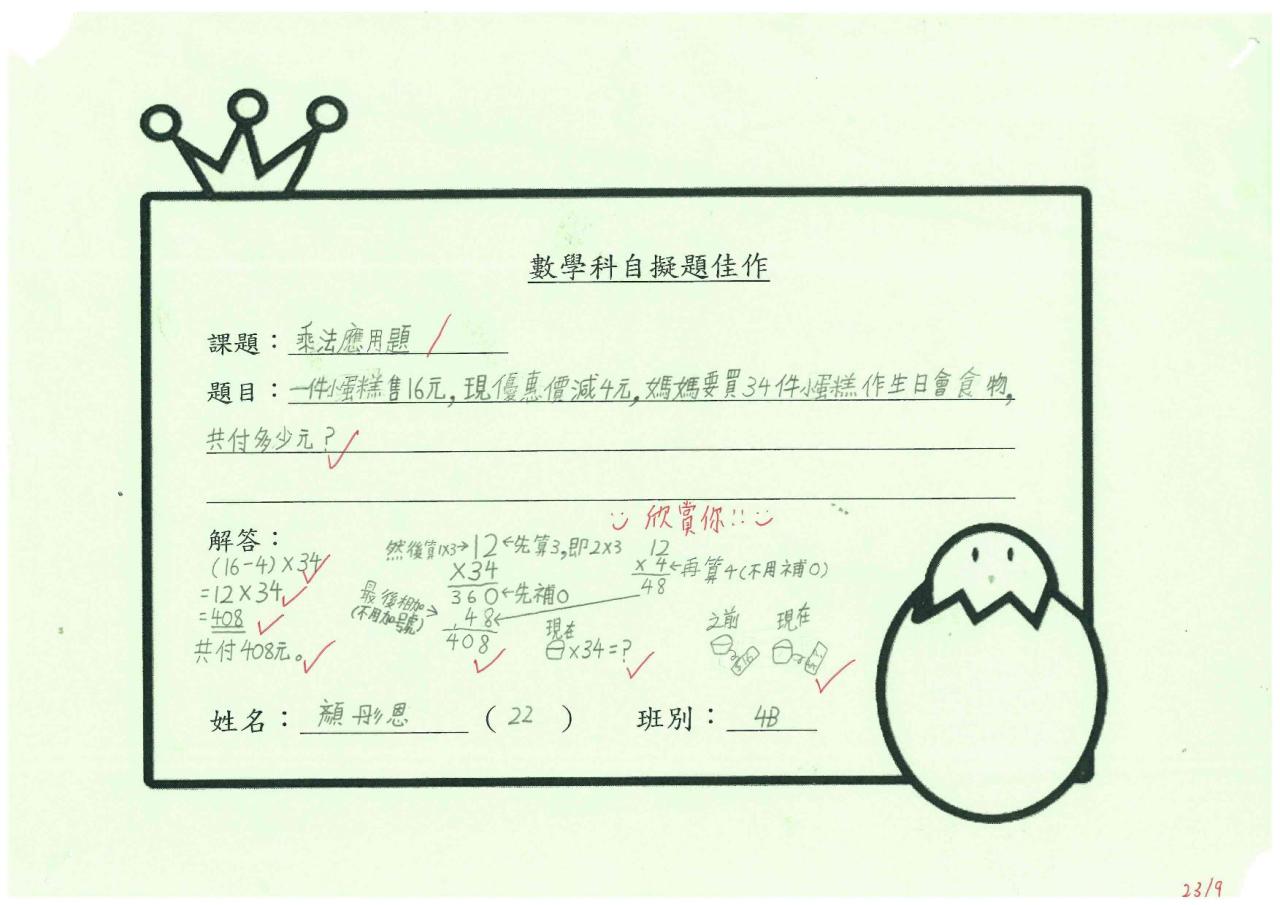 數學科自擬題佳作
課題：乘法應用題
題目：一件小蛋糕售16元,現優惠價減4元,媽媽要買34件小蛋糕作生日會食物,
共付多少元?
欣賞你!!
解答：
(16-4)×34
=12×34
=408
共付408元。
然後算1×3→12←先算3,即2×3
×34
360←先補0
最後相加
(不用加號)→
48
408
12
×4←再算4(不用補0)
48
現在
×34=?
之前
$16
現在
姓名：顏彤恩 (22) 班別：4B
23/9